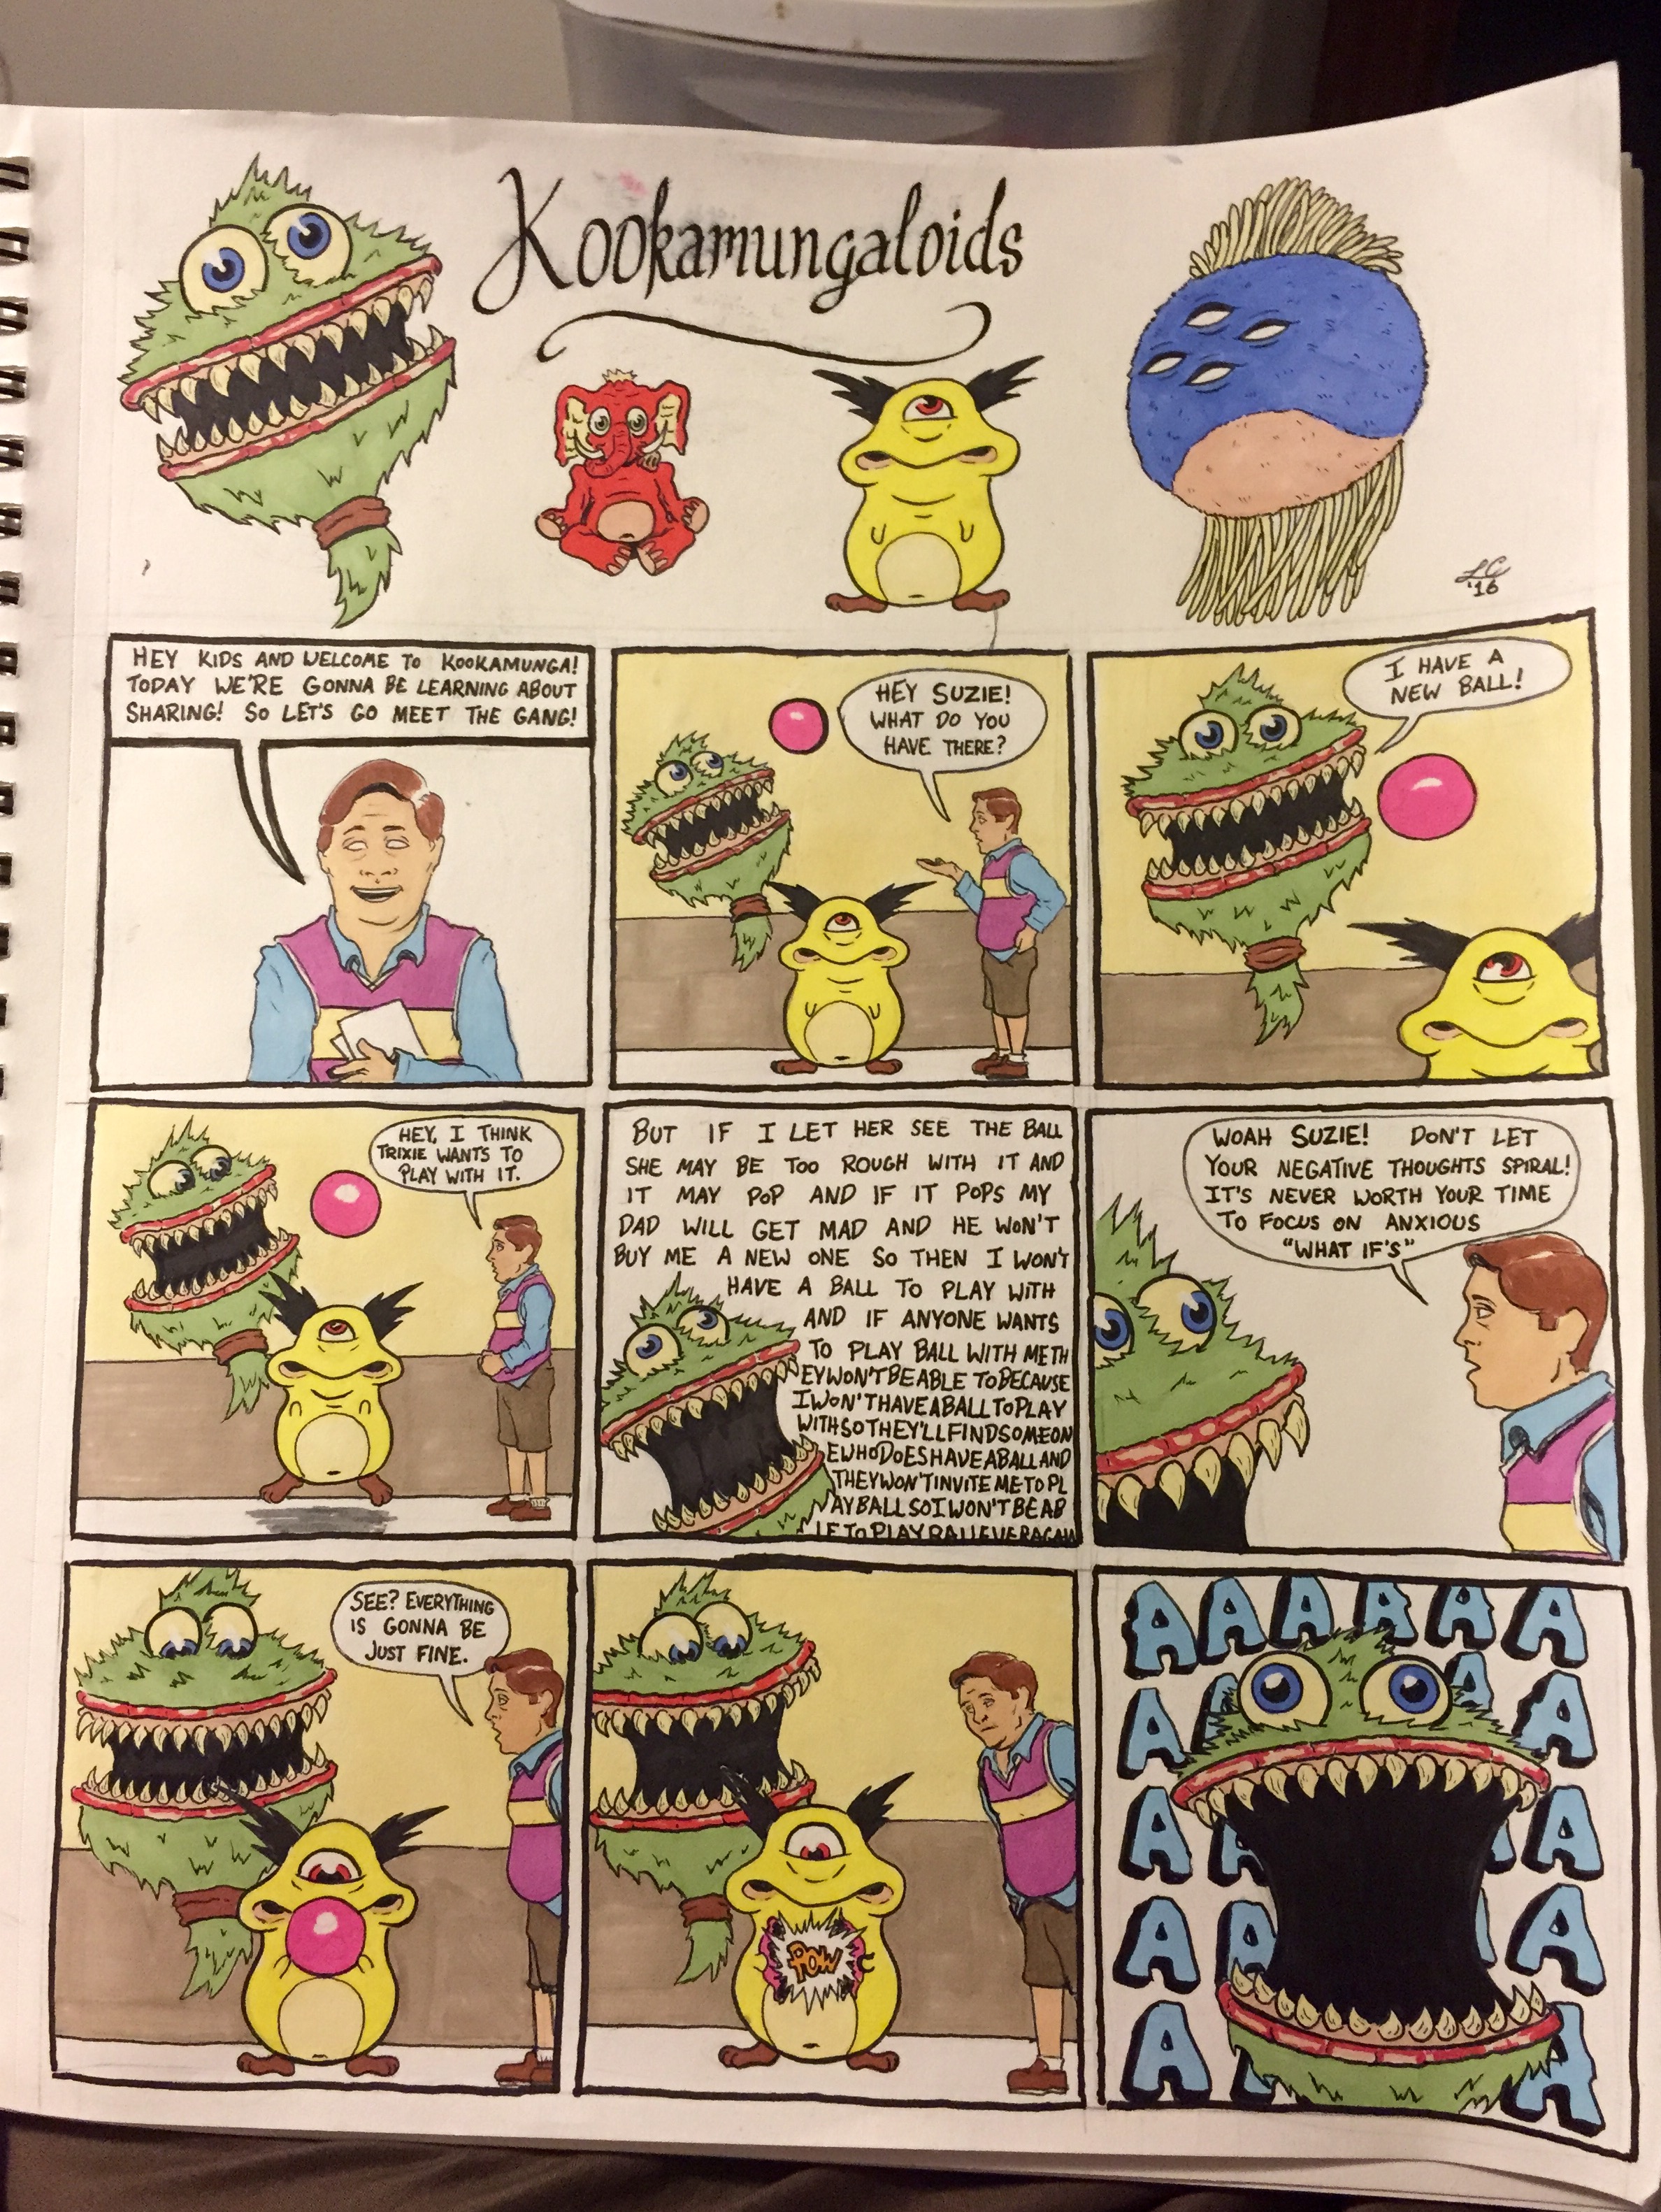 Kookamungaloids
LC
'16
HEY KIDS AND WELCOME TO KOOKAMUNGA!
TODAY WE'RE GONNA BE LEARNING ABOUT
SHARING! SO LET'S GO MEET THE GANG!
HEY SUZIE!
WHAT DO YOU
HAVE THERE?
I HAVE A
NEW BALL!
HEY, I THINK
TRIXIE WANTS TO
PLAY WITH IT.
BUT IF I LET HER SEE THE BALL
SHE MAY BE TOO ROUGH WITH IT AND
IT MAY POP AND IF IT POPS MY
DAD WILL GET MAD AND HE WON'T
BUY ME A NEW ONE SO THEN I WON'T
HAVE A BALL TO PLAY WITH
AND IF ANYONE WANTS
TO PLAY BALL WITH METH
EYWON'TBEABLE TOBECAUSE
IWON'THAVEABALLTOPLAY
WITHSOTHEY'LLFINDSOMEON
EWHODOESHAVEABALLAND
THEYWON'TINVITEMETOPL
AYBALLSOIWON'TBEAB
LETOPLAYBALLEVERAGAIN
WOAH SUZIE! DON'T LET
YOUR NEGATIVE THOUGHTS SPIRAL!
IT'S NEVER WORTH YOUR TIME
TO FOCUS ON ANXIOUS
"WHAT IF'S"
SEE? EVERYTHING
IS GONNA BE
JUST FINE.
POW
AAAAAA
AAAA
AAAA
AAA
AAA